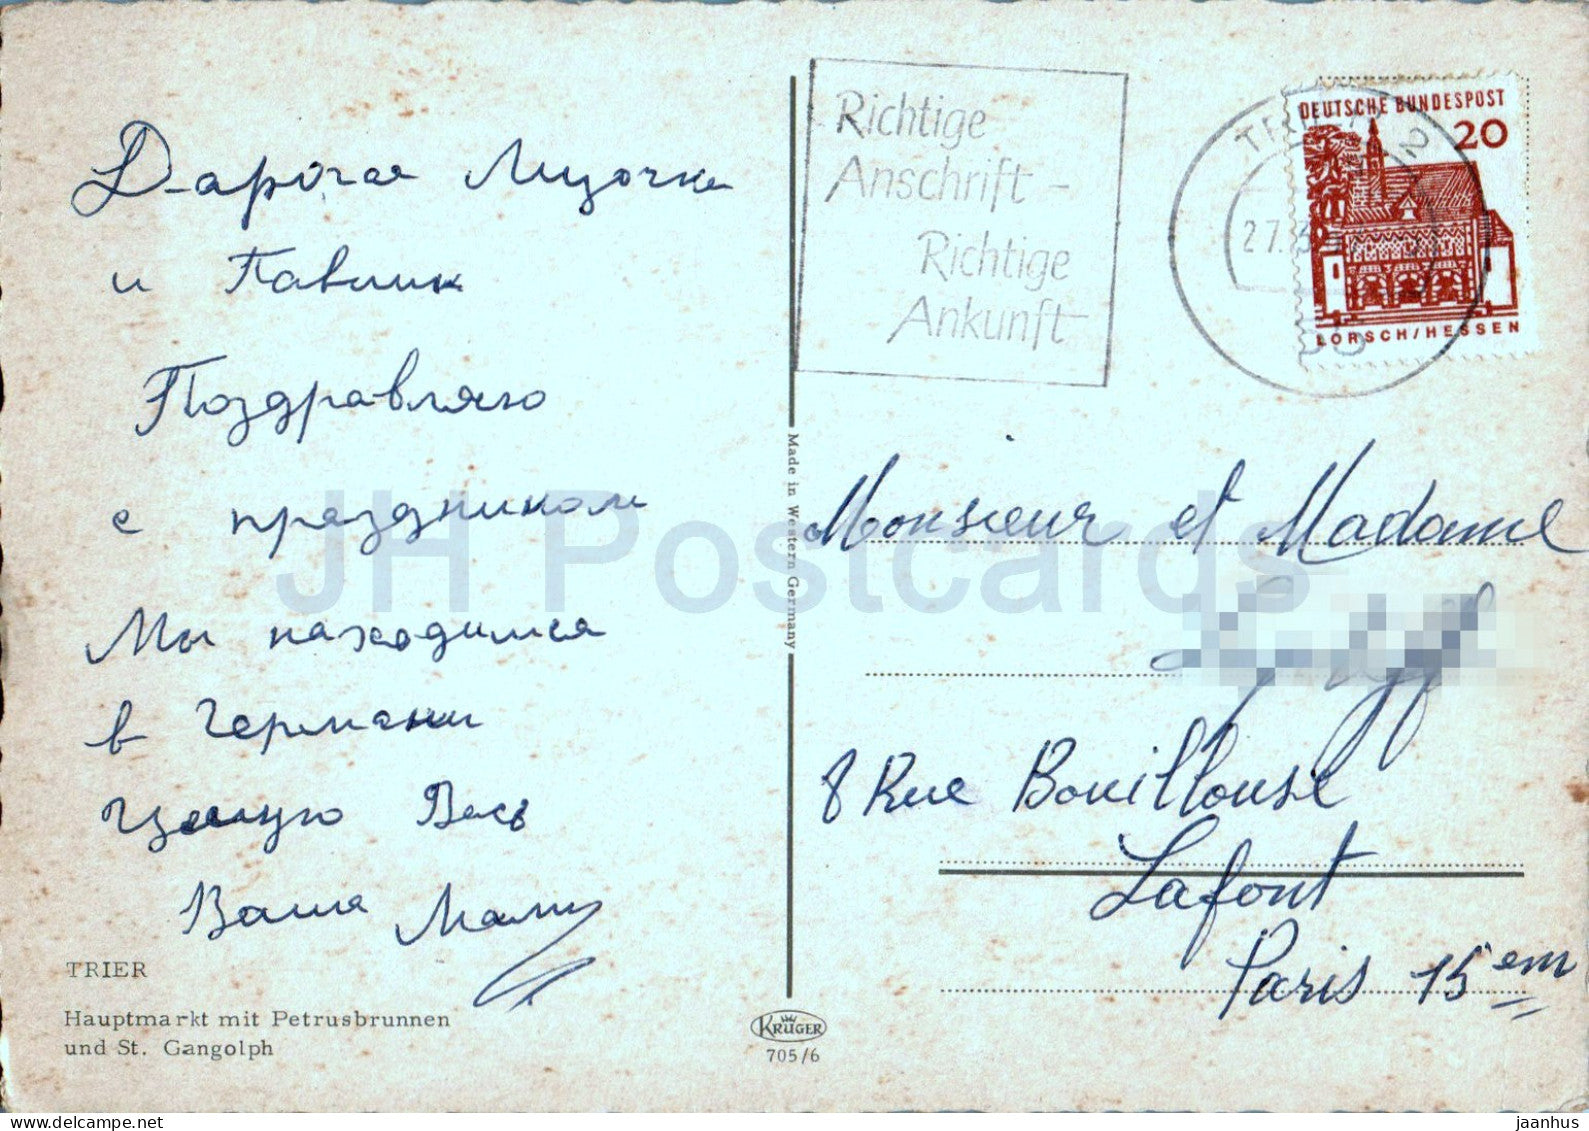 Дарогая Люзочка
и Павлик
Поздравляю
с праздником
Мы находимся
в Германи
Целую Васъ
Ваша Мама
TRIER
Hauptmarkt mit Petrusbrunnen
und St. Gangolph
Made in Western Germany
KRÜGER
705/6
Richtige
Anschrift -
Richtige
Ankunft
DEUTSCHE BUNDESPOST
20
LORSCH/HESSEN
Monsieur et Madame
8 Rue Bouillouse
Lafont
Paris 15 em
JH Postcards
jaanhus